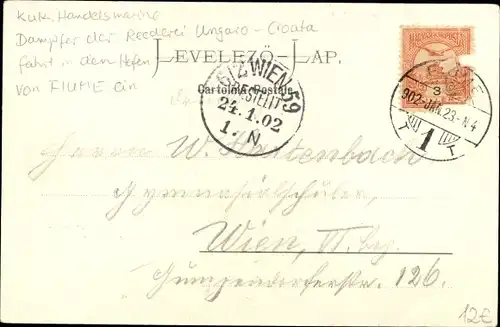 K.u.K. Handelsmarine
Dampfer der Reederei Ungaro-Croata
fährt in den Hafen
von FIUME ein
LEVELEZŐ-LAP.
Cartolina Postale
6/2 WIEN 59
BESTELLT
24.1.02
1. N
FIUME
902 JAN. 23 - N 4
T 1 T
Herrn W.
Gymnasialschüler,
Wien, VI. bez.
Gumpendorferstr. 126.
12€